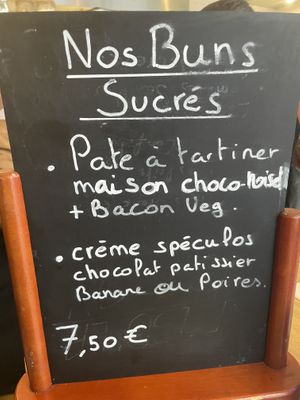 Nos Buns
Sucrés
. Pate a tartiner
maison choco-noiset
+ Bacon Veg.
. crème spéculos
chocolat patissier
Banane ou Poires.
7,50 €